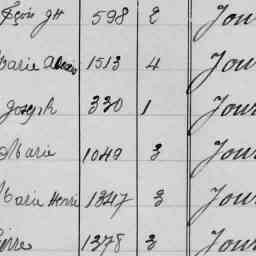 Fçois Jh 598 2 Jou
Marie Alexis 1513 4 Jou
Joseph 330 1 Jour
Marie 1049 3 Jour
Marie Henri 1347 3 Jour
ierre 1378 3 Jour